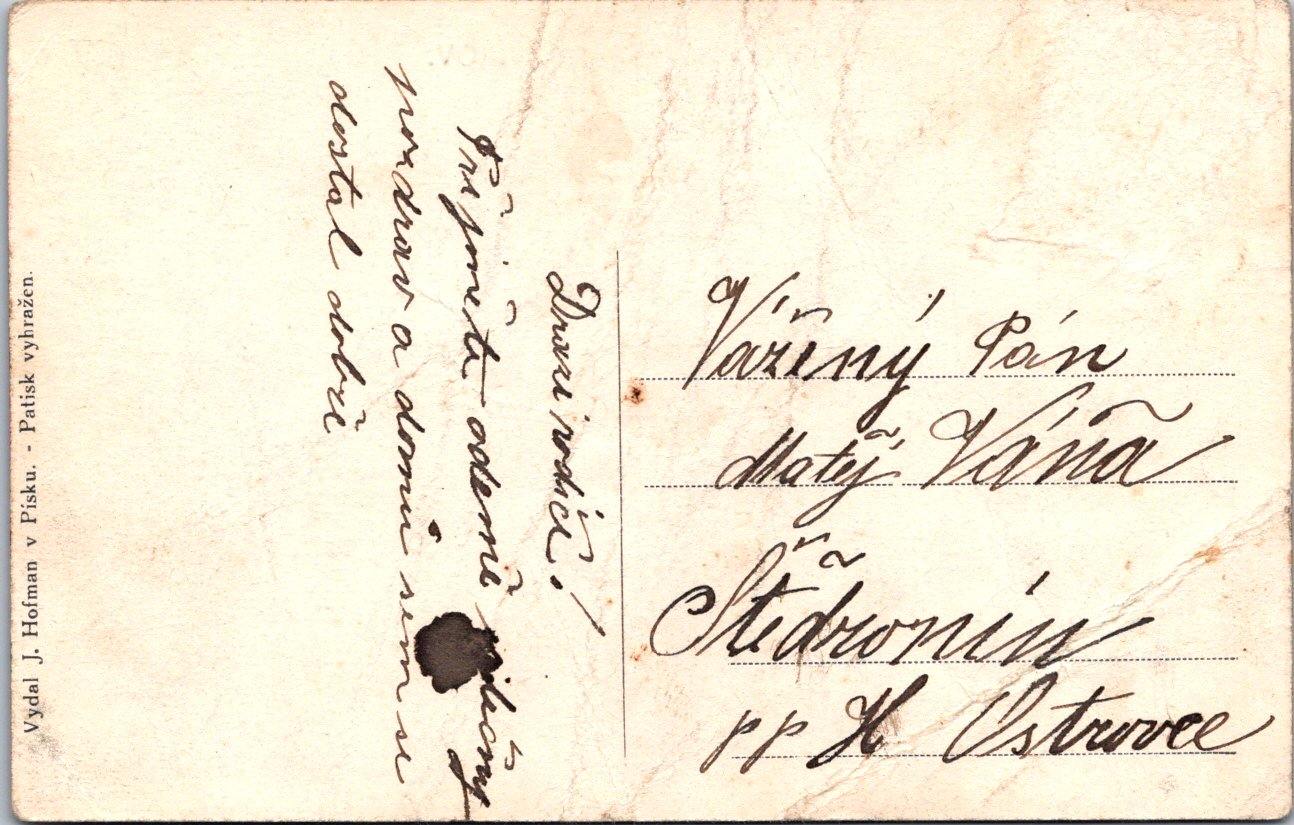 Vydal J. Hofman v Písku. - Patisk vyhražen.
Drazí rodiče!
Přijměte odemě srdečný
pozdrav a domu sem se
dostal dobře
Vážený Pán
Matěj Váňa
Štědronín
pp H Ostrovec